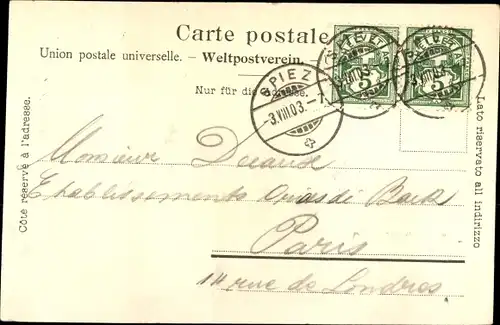 Carte postale.
Union postale universelle. — Weltpostverein.
Nur für die Adresse.
SPIEZ
-3.VIII.03.-7
5
5
Côte réservé à l'adresse.
Lato riservato all indirizzo
Monsieur
Etablissements
Paris
14 rue de Londres